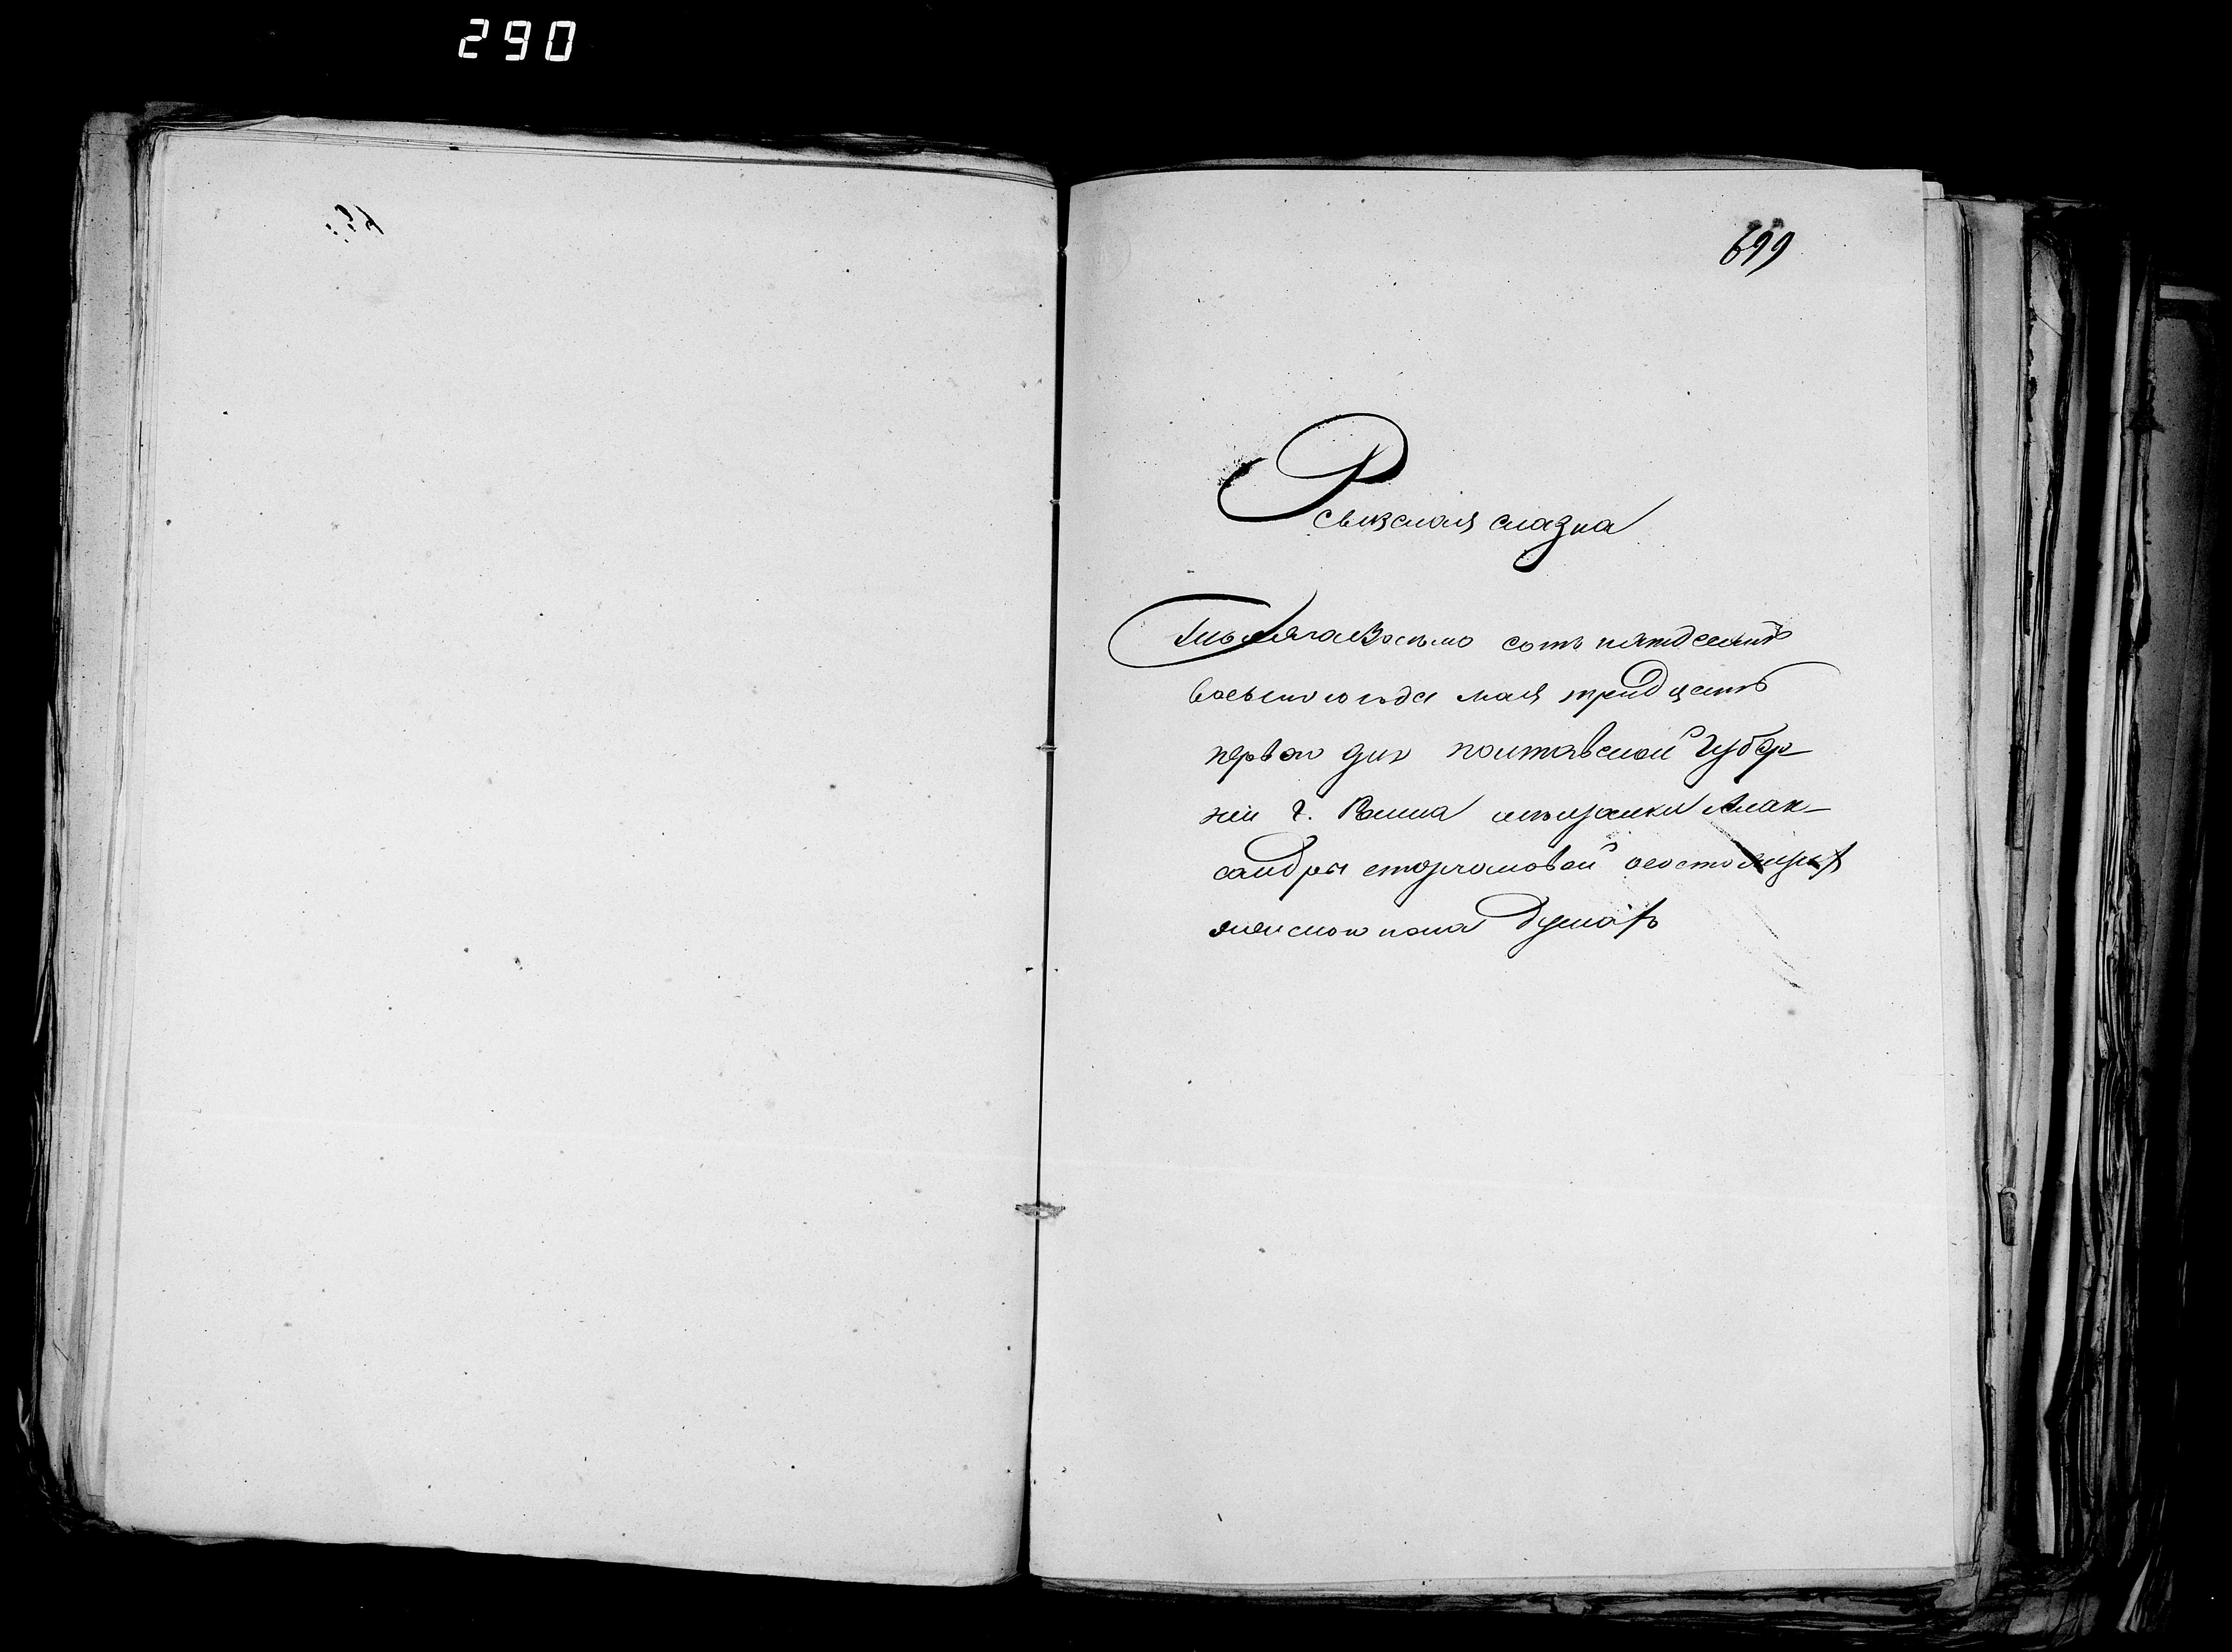 290
699
Ревизская сказка
Тысяча Восемьсотъ пятдесятъ
восьмого года мая тридцать
первого дня полтавской губер
нии г. Ромна мещанки Алек-
сандры состоящихъ
женского пола душахъ